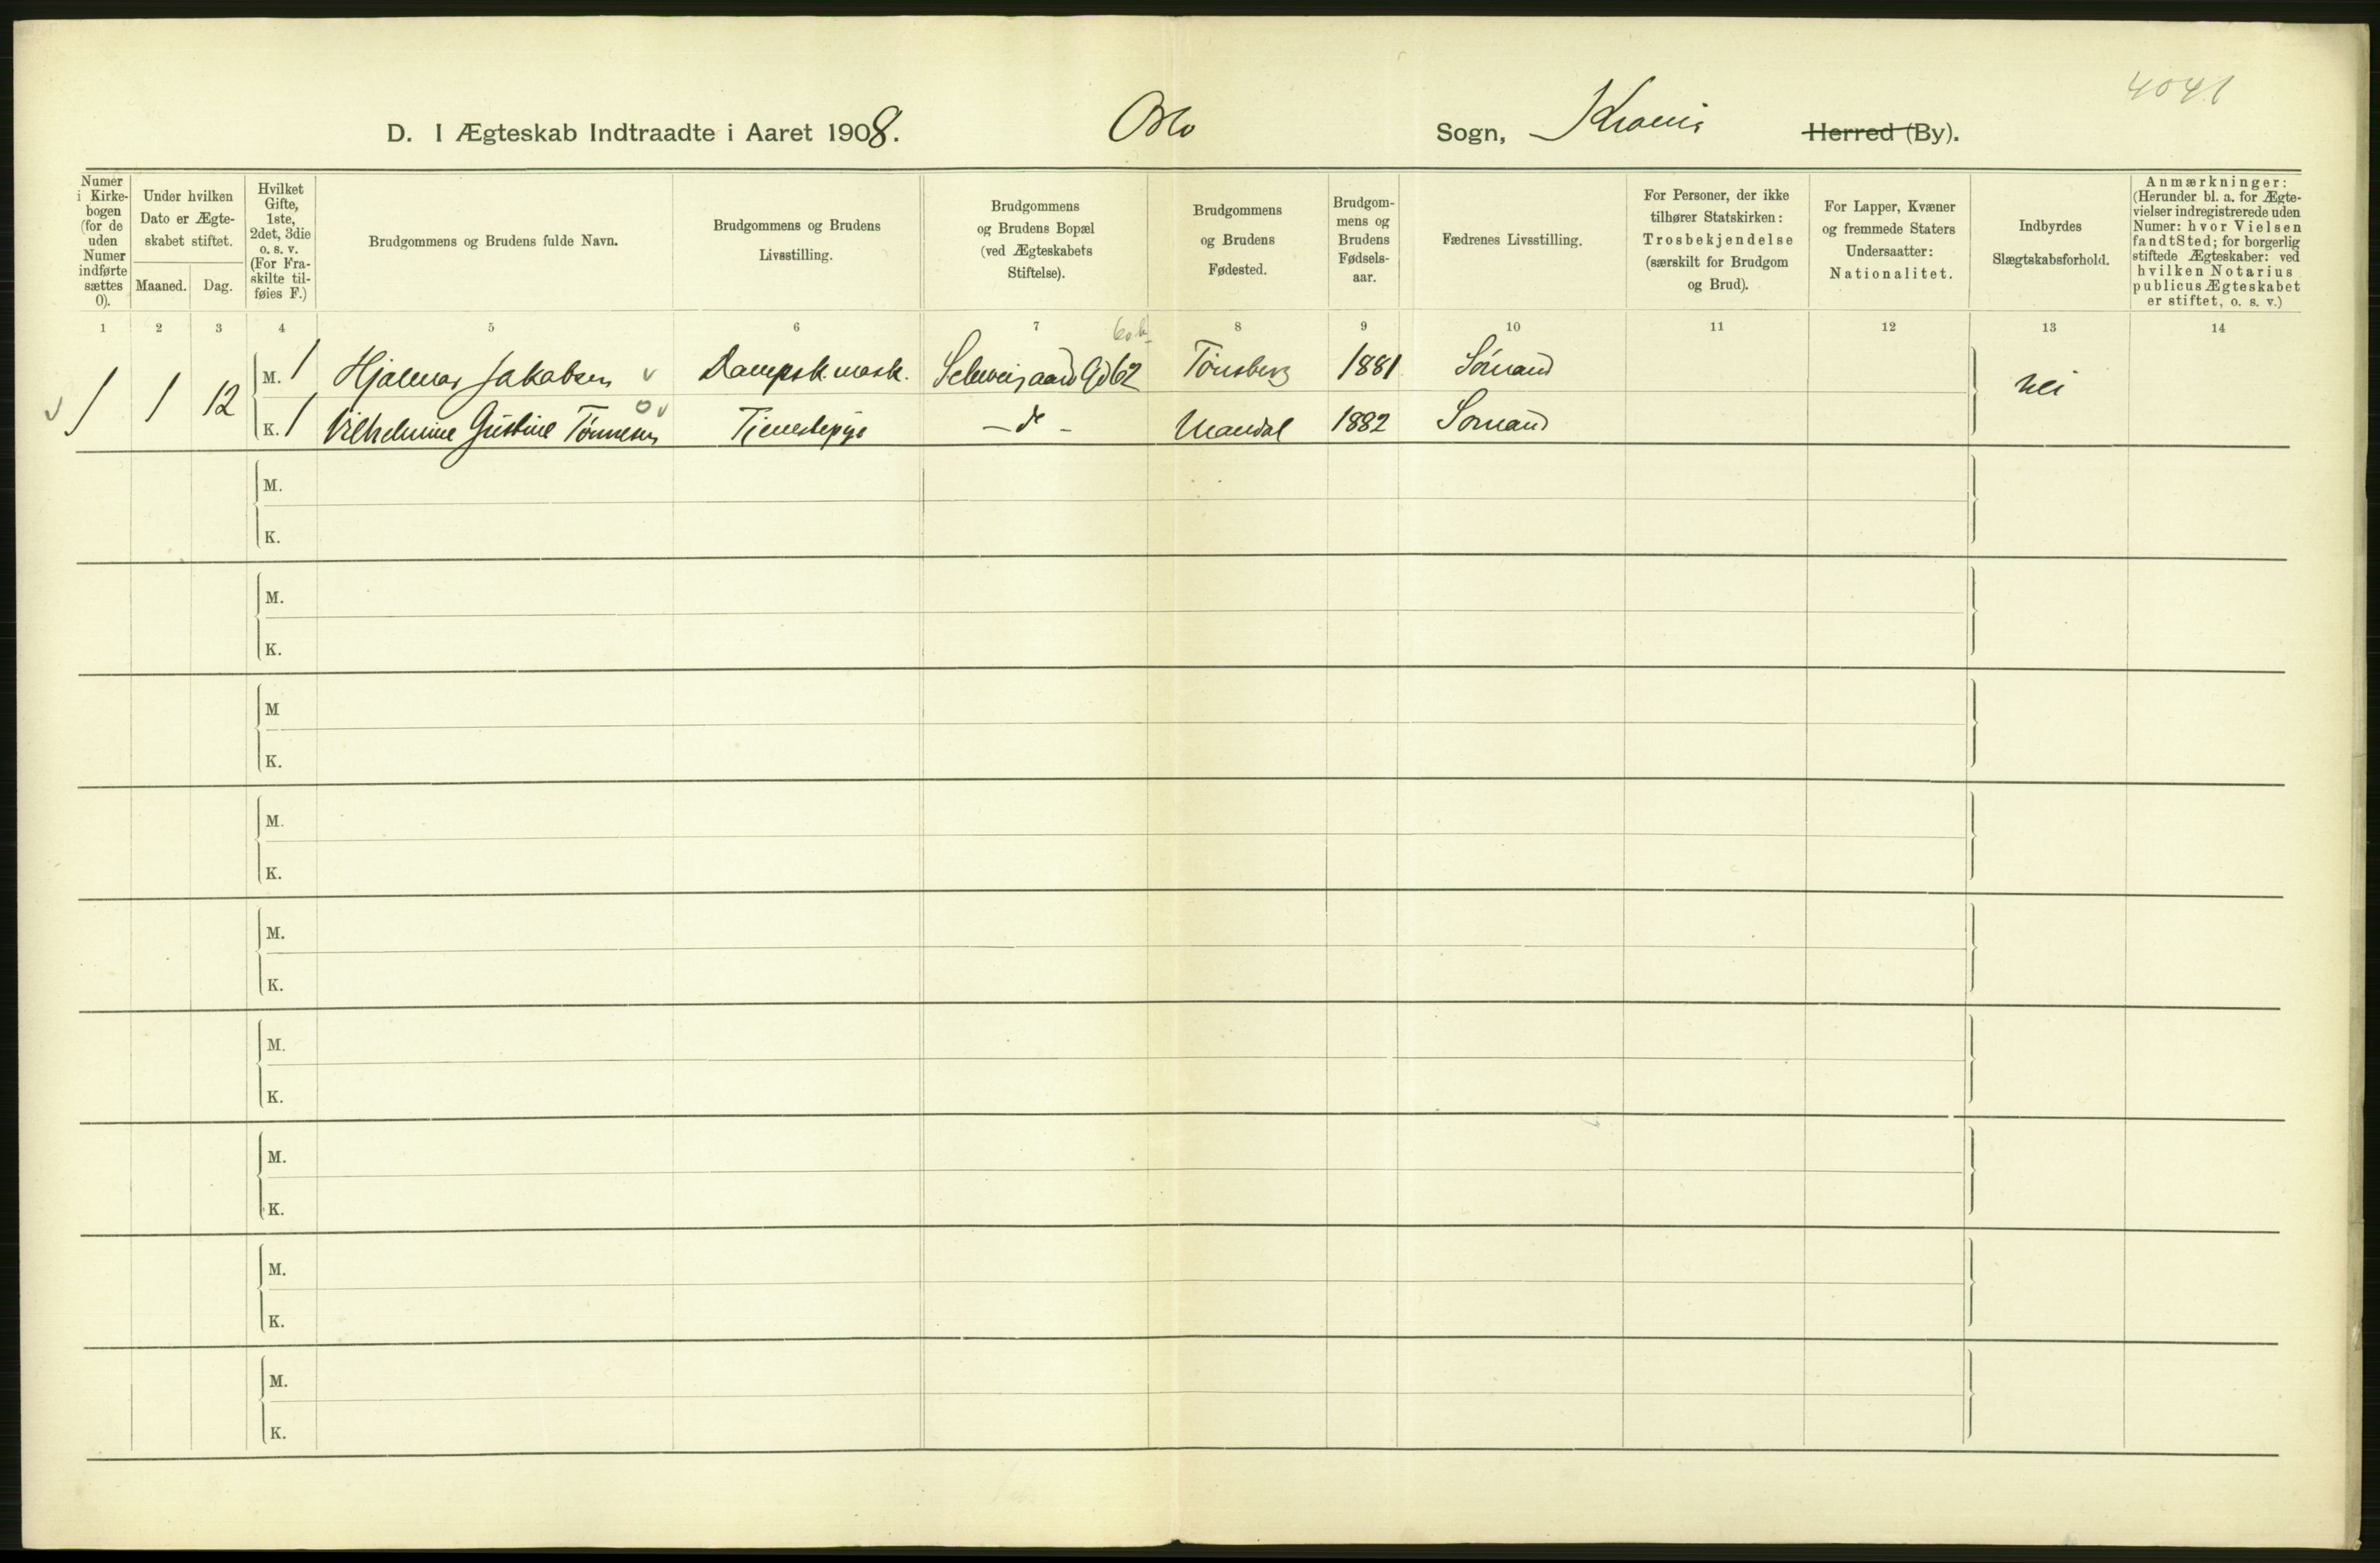 4041
D. I Ægteskab Indtraadte i Aaret 1908. Oslo Sogn, Krania Herred (By).
Numer i Kirkebogen (for de uden Numer indførte sættes 0).
Under hvilken Dato er Ægteskabet stiftet.
Maaned. Dag.
Hvilket Gifte, 1ste, 2det, 3die o. s. v. (For Fraskilte tilføies F.)
Brudgommens og Brudens fulde Navn.
Brudgommens og Brudens Livsstilling.
Brudgommens og Brudens Bopæl (ved Ægteskabets Stiftelse).
Brudgommens og Brudens Fødested.
Brudgommens og Brudens Fødselsaar.
Fædrenes Livsstilling.
For Personer, der ikke tilhører Statskirken: Trosbekjendelse (særskilt for Brudgom og Brud).
For Lapper, Kvæner og fremmede Staters Undersaatter: Nationalitet.
Indbyrdes Slægtskabsforhold.
Anmærkninger: (Herunder bl. a. for Ægtevielser indregistrerede uden Numer: hvor Vielsen fandt Sted; for borgerlig stiftede Ægteskaber: ved hvilken Notarius publicus Ægteskabet er stiftet, o. s. v.)
1 2 3 4 5 6 7 8 9 10 11 12 13 14
1 1 12 M. 1 Hjalmar Jakobsen v Dampsk.mask. Schweigaard Gd 62 Tønsberg 1881 Sømand nei
K. 1 Vilhelmine Gustine Tønnesen Tjenestepige - do - Mandal 1882 Sømand
M.
K.
M.
K.
M
K.
M.
K.
M.
K.
M.
K.
M.
K.
M.
K.
M.
K.